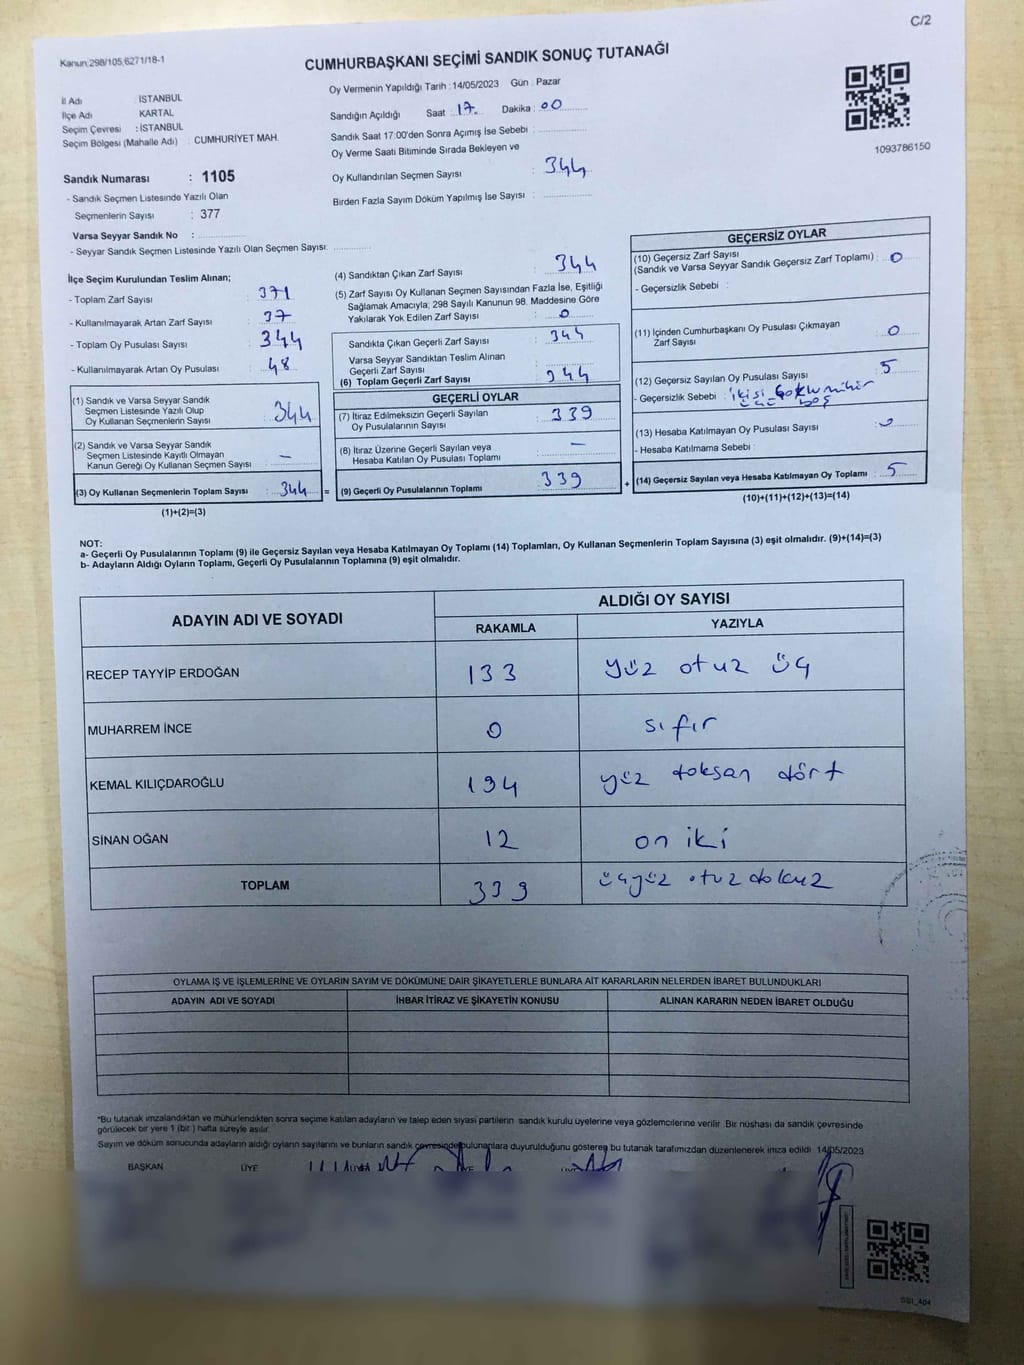 C/2
Kanun:298/105,6271/18-1
CUMHURBAŞKANI SEÇİMİ SANDIK SONUÇ TUTANAĞI
İl Adı : İSTANBUL
İlçe Adı KARTAL
Seçim Çevresi : İSTANBUL
Seçim Bölgesi (Mahalle Adı) : CUMHURİYET MAH.
Oy Vermenin Yapıldığı Tarih : 14/05/2023 Gün : Pazar
Sandığın Açıldığı Saat : 17 Dakika : 00
Sandık Saat 17:00'den Sonra Açımış İse Sebebi :
Oy Verme Saati Bitiminde Sırada Bekleyen ve
Oy Kullandırılan Seçmen Sayısı : 344
Birden Fazla Sayım Döküm Yapılmış İse Sayısı :
1093786150
Sandık Numarası : 1105
- Sandık Seçmen Listesinde Yazılı Olan
Seçmenlerin Sayısı : 377
Varsa Seyyar Sandık No :
- Seyyar Sandık Seçmen Listesinde Yazılı Olan Seçmen Sayısı:
İlçe Seçim Kurulundan Teslim Alınan;
- Toplam Zarf Sayısı : 371
- Kullanılmayarak Artan Zarf Sayısı : 37
- Toplam Oy Pusulası Sayısı : 344
- Kullanılmayarak Artan Oy Pusulası : 48
(1) Sandık ve Varsa Seyyar Sandık
Seçmen Listesinde Yazılı Olup
Oy Kullanan Seçmenlerin Sayısı : 344
(2) Sandık ve Varsa Seyyar Sandık
Seçmen Listesinde Kayıtlı Olmayan
Kanun Gereği Oy Kullanan Seçmen Sayısı : –
(3) Oy Kullanan Seçmenlerin Toplam Sayısı : 344 =
(1)+(2)=(3)
(4) Sandıktan Çıkan Zarf Sayısı : 344
(5) Zarf Sayısı Oy Kullanan Seçmen Sayısından Fazla İse, Eşitliği
Sağlamak Amacıyla; 298 Sayılı Kanunun 98. Maddesine Göre
Yakılarak Yok Edilen Zarf Sayısı : 0
Sandıkta Çıkan Geçerli Zarf Sayısı : 344
Varsa Seyyar Sandıktan Teslim Alınan
Geçerli Zarf Sayısı
(6) Toplam Geçerli Zarf Sayısı : 344
GEÇERLİ OYLAR
(7) İtiraz Edilmeksizin Geçerli Sayılan
Oy Pusulalarının Sayısı : 339
(8) İtiraz Üzerine Geçerli Sayılan veya
Hesaba Katılan Oy Pusulası Toplamı : –
(9) Geçerli Oy Pusulalarının Toplamı : 339 +
GEÇERSİZ OYLAR
(10) Geçersiz Zarf Sayısı
(Sandık ve Varsa Seyyar Sandık Geçersiz Zarf Toplamı) : 0
- Geçersizlik Sebebi :
(11) İçinden Cumhurbaşkanı Oy Pusulası Çıkmayan
Zarf Sayısı : 0
(12) Geçersiz Sayılan Oy Pusulası Sayısı : 5
- Geçersizlik Sebebi : ikisi çok mühür
üçü boş
(13) Hesaba Katılmayan Oy Pusulası Sayısı : 0
- Hesaba Katılmama Sebebi :
(14) Geçersiz Sayılan veya Hesaba Katılmayan Oy Toplamı : 5
(10)+(11)+(12)+(13)=(14)
NOT:
a- Geçerli Oy Pusulalarının Toplamı (9) ile Geçersiz Sayılan veya Hesaba Katılmayan Oy Toplamı (14) Toplamları, Oy Kullanan Seçmenlerin Toplam Sayısına (3) eşit olmalıdır. (9)+(14)=(3)
b- Adayların Aldığı Oyların Toplamı, Geçerli Oy Pusulalarının Toplamına (9) eşit olmalıdır.
ADAYIN ADI VE SOYADI ALDIĞI OY SAYISI
RAKAMLA YAZIYLA
RECEP TAYYİP ERDOĞAN 133 yüz otuz üç
MUHARREM İNCE 0 sıfır
KEMAL KILIÇDAROĞLU 194 yüz doksan dört
SİNAN OĞAN 12 on iki
TOPLAM 339 üçyüz otuz dokuz
OYLAMA İŞ VE İŞLEMLERİNE VE OYLARIN SAYIM VE DÖKÜMÜNE DAİR ŞİKAYETLERLE BUNLARA AİT KARARLARIN NELERDEN İBARET BULUNDUKLARI
ADAYIN ADI VE SOYADI İHBAR İTİRAZ VE ŞİKAYETİN KONUSU ALINAN KARARIN NEDEN İBARET OLDUĞU
*Bu tutanak imzalandıktan ve mühürlendikten sonra seçime katılan adayların ve talep eden siyasi partilerin sandık kurulu üyelerine veya gözlemcilerine verilir. Bir nüshası da sandık çevresinde
görülecek bir yere 1 (bir ) hafta süreyle asılır.
Sayım ve döküm sonucunda adayların aldığı oyların sayılarını ve bunların sandık çevresinde bulunanlara duyurulduğunu gösteren bu tutanak tarafımızdan düzenlenerek imza edildi 14/05/2023
BAŞKAN ÜYE